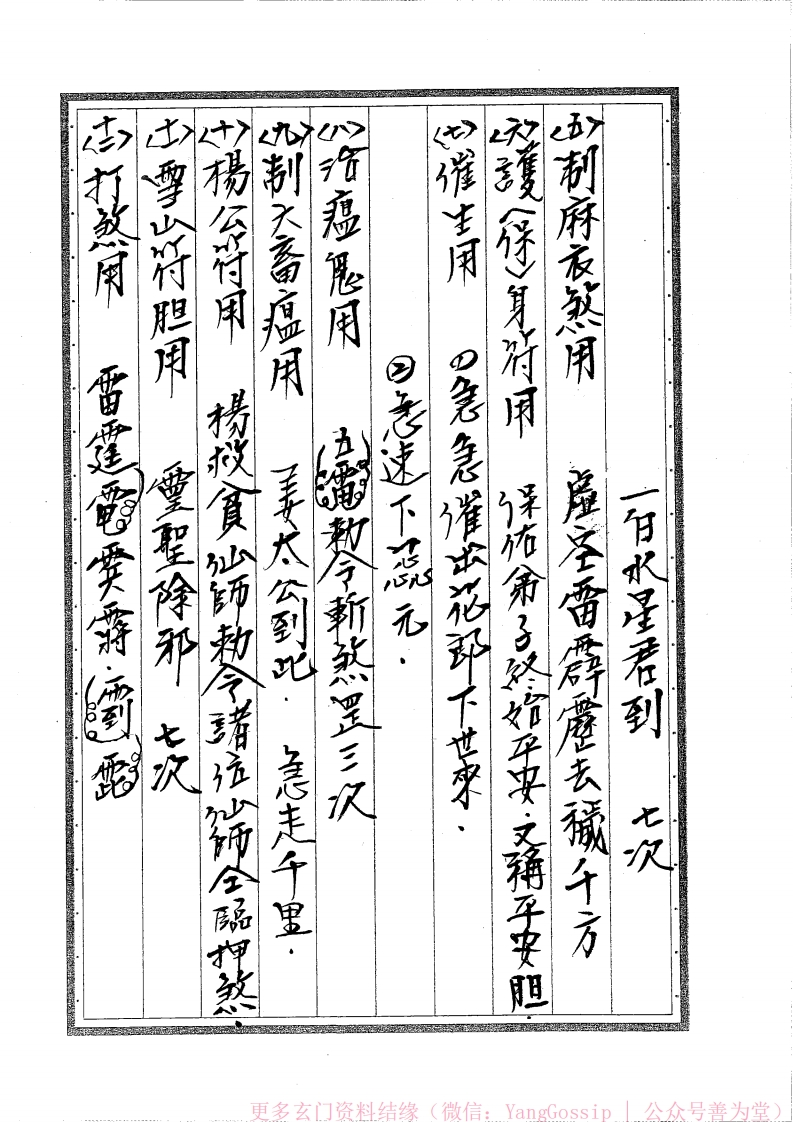 一白水星君到　七次
〈五〉制麻衣煞用　虛空雷霹靂去穢千方
〈六〉護〈保〉身符用　保佑弟子終始平安．又稱平安胆．
〈七〉催生用　㈣急急催出花郎下世來．
②急速下元．
〈八〉治瘟鬼用　（五雷）勅令斬煞罡三次
〈九〉制六畜瘟用　姜太公到此．急走千里．
〈十〉楊公符用　楊救貧仙師勅令諸位仙師全臨押煞．
〈十一〉雪山符胆用　靈聖除邪　七次
〈十二〉打煞用　雷霆
更多玄门资料结缘（微信：YangGossip | 公众号善为堂）